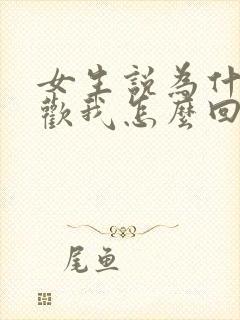 女生說為什
歡我怎麼回
尾鱼